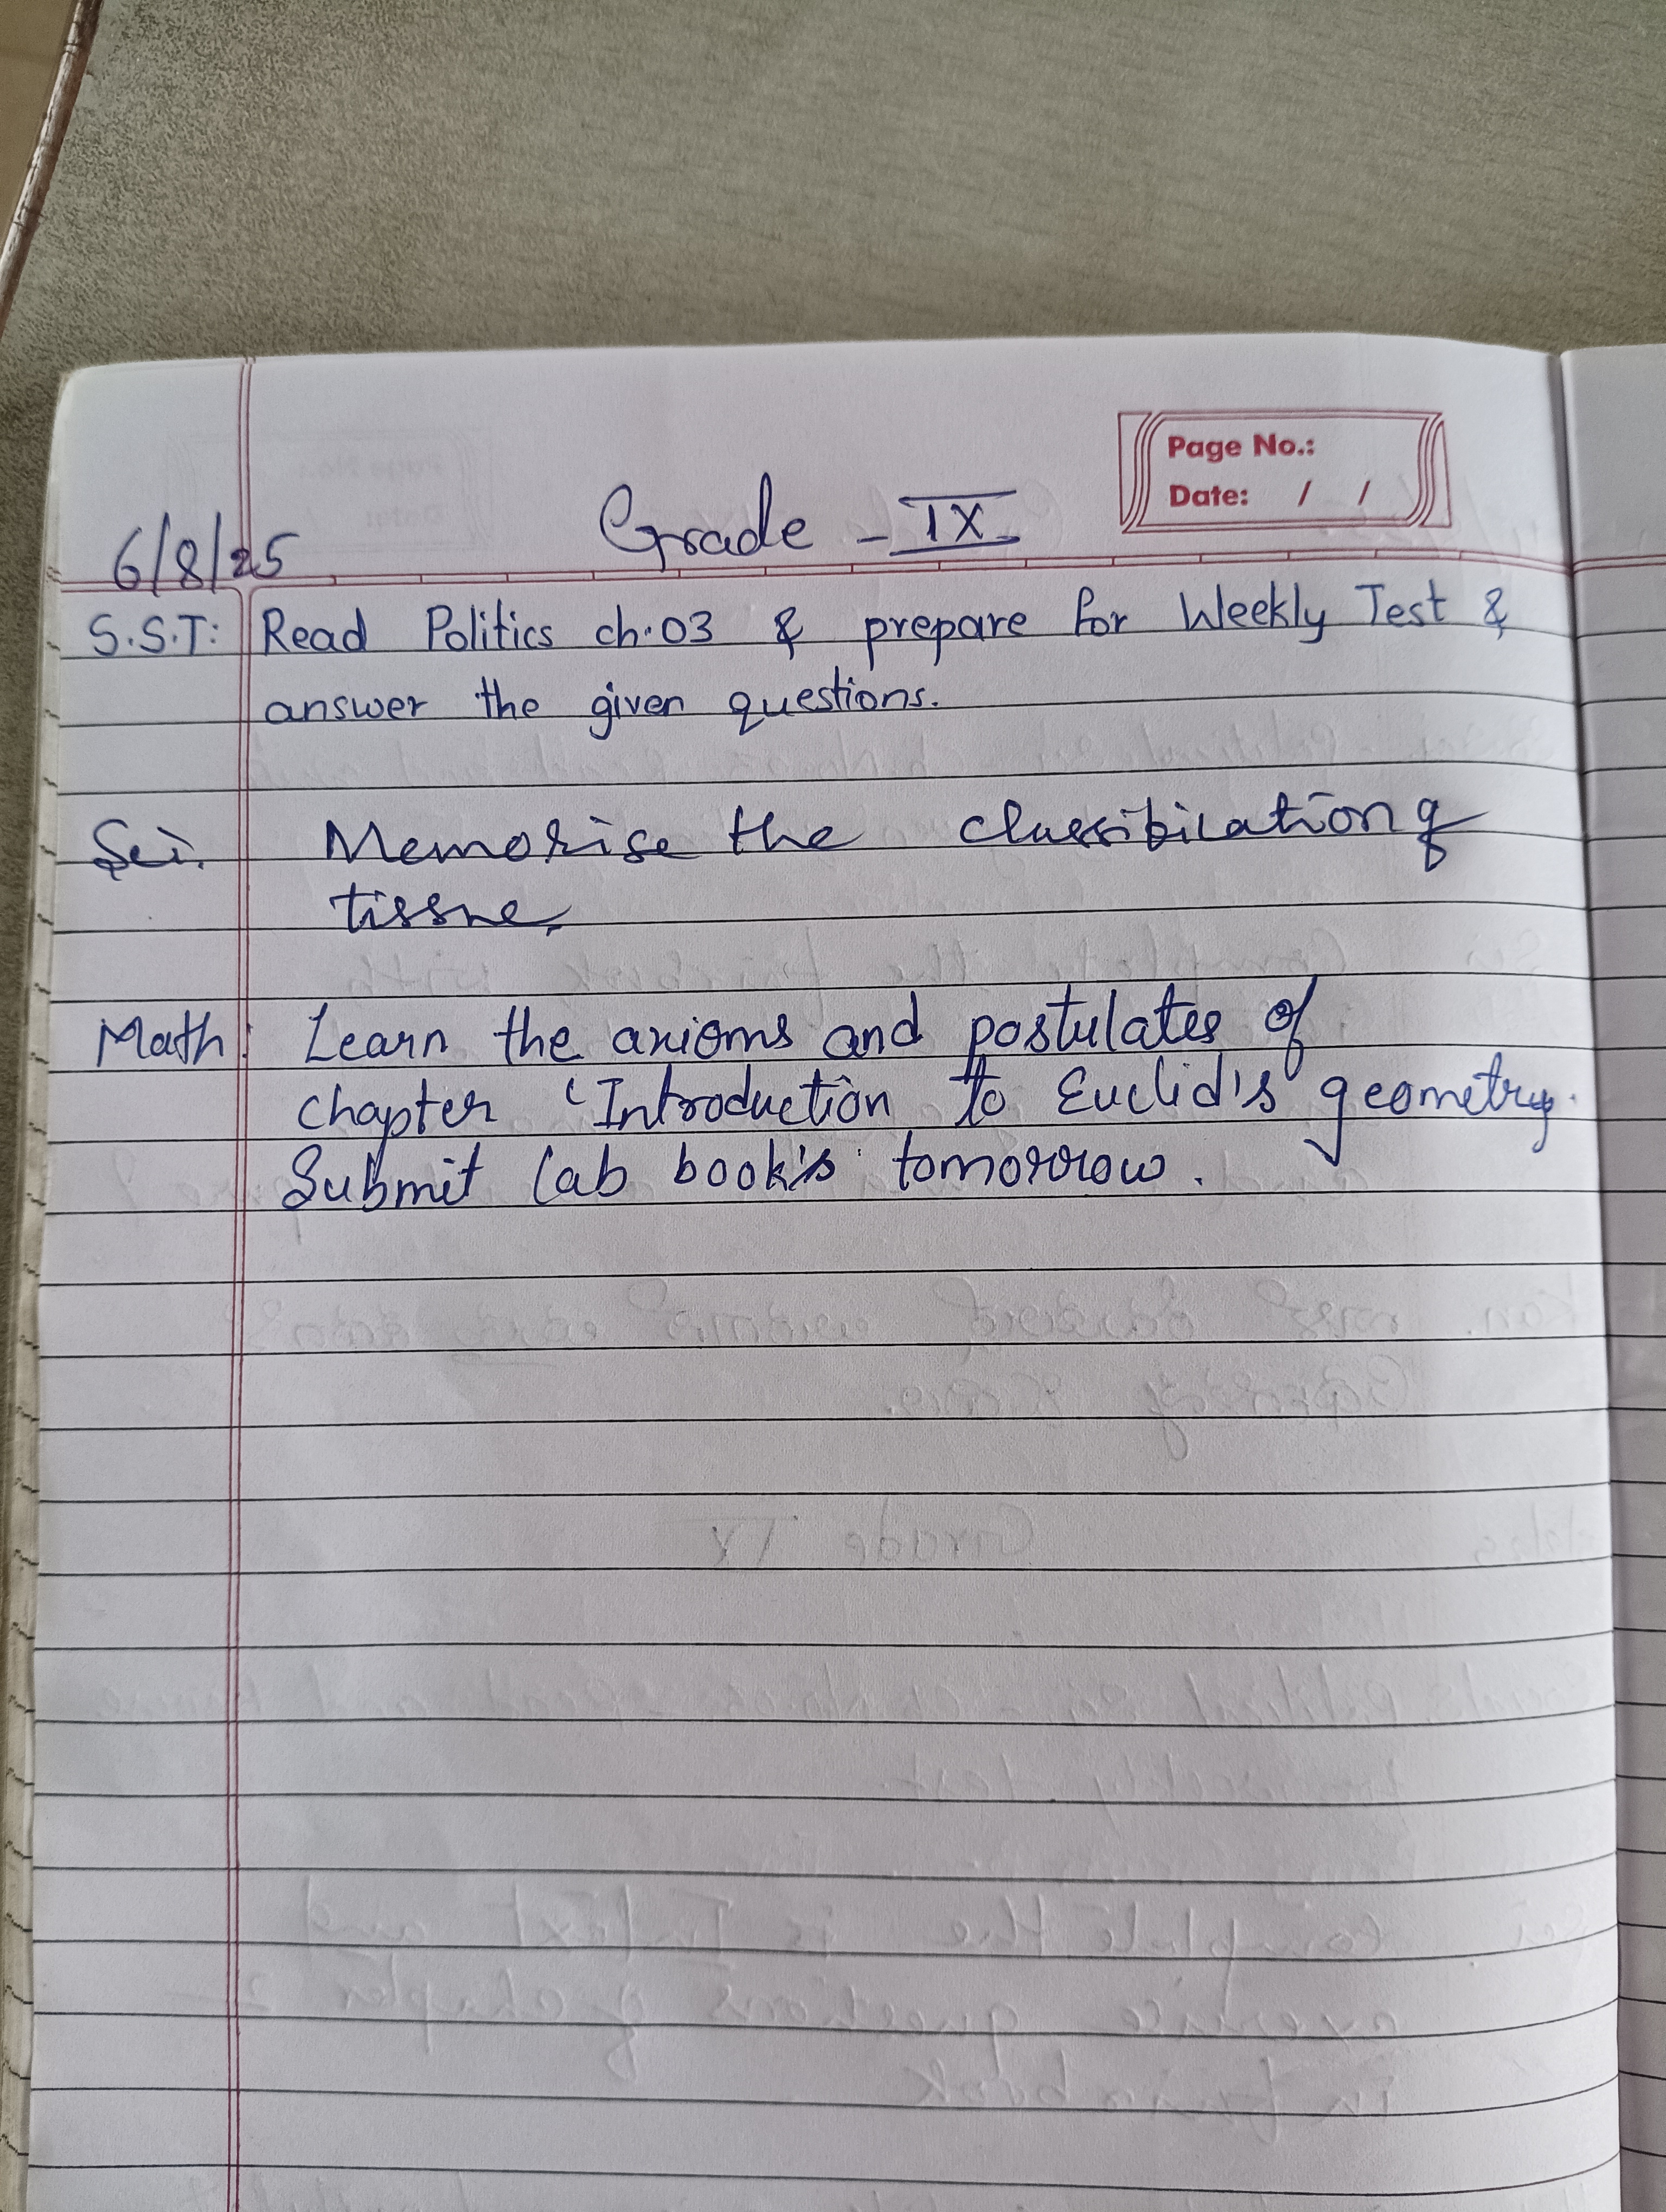 Page No.:
Date: / /
Grade - IX
6/8/25
S.S.T: Read Politics ch.03 & prepare for Weekly Test &
answer the given questions.
Sci. Memorise the classification of
tissue.
Math: Learn the axioms and postulates of
chapter 'Introduction to Euclid's geometry.
Submit lab book's tomorrow.